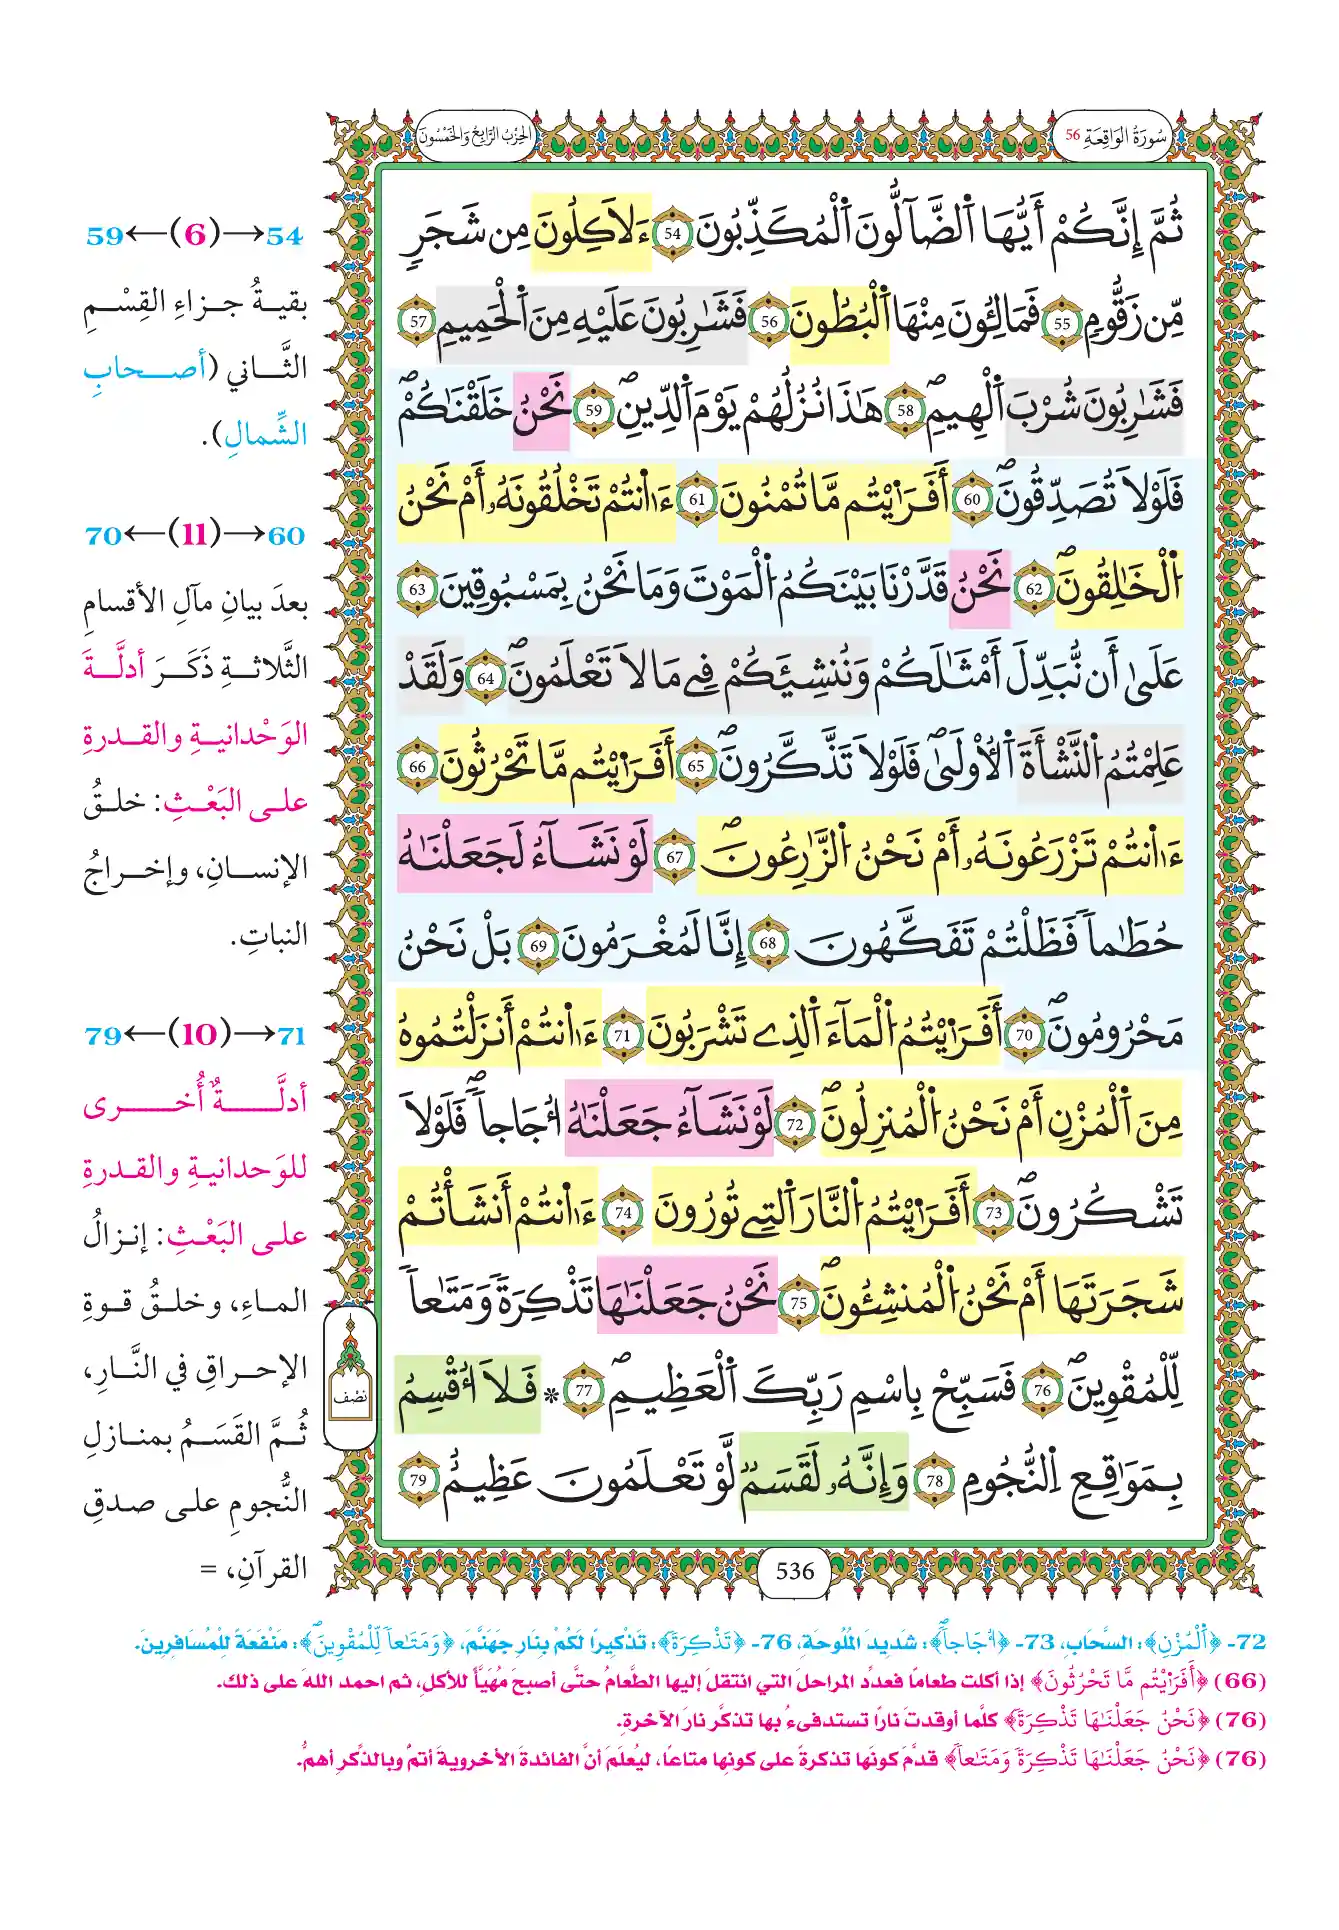 سُورَةُ الوَاقِعَةِ 56
الحِزْبُ الرَّابِعُ وَالخَمْسُونَ
ثُمَّ إِنَّكُمْ أَيُّهَا اَ۬لضَّآلُّونَ اَ۬لْمُكَذِّبُونَ 54 ءَلَاكِلُونَ مِن شَجَرٖ
مِّن زَقُّومٖ 55 فَمَالِـُٔونَ مِنْهَا اَ۬لْبُطُونَ 56 فَشَٰرِبُونَ عَلَيْهِ مِنَ اَ۬لْحَمِيمِ 57
فَشَٰرِبُونَ شُرْبَ اَ۬لْهِيمِۖ 58 هَٰذَا نُزُلُهُمْ يَوْمَ اَ۬لدِّينِۖ 59 نَحْنُ خَلَقْنَٰكُمْۖ
فَلَوْلَا تُصَدِّقُونَۖ 60 أَفَرَٰٓيْتُم مَّا تُمْنُونَ 61 ءَآنتُمْ تَخْلُقُونَهُۥٓ أَمْ نَحْنُ
اُ۬لْخَٰلِقُونَۖ 62 نَحْنُ قَدَّرْنَا بَيْنَكُمُ اُ۬لْمَوْتَ وَمَا نَحْنُ بِمَسْبُوقِينَ 63
عَلَىٰٓ أَن نُّبَدِّلَ أَمْثَٰلَكُمْ وَنُنشِئَكُمْ فِے مَا لَا تَعْلَمُونَۖ 64 وَلَقَدْ
عَلِمْتُمُ اُ۬لنَّشْأَةَ اَ۬لُاولَىٰ فَلَوْلَا تَذَّكَّرُونَۖ 65 أَفَرَٰٓيْتُم مَّا تَحْرُثُونَ 66
ءَآنتُمْ تَزْرَعُونَهُۥٓ أَمْ نَحْنُ اُ۬لزَّٰرِعُونَۖ 67 لَوْ نَشَآءُ لَجَعَلْنَٰهُ
حُطَٰماٗ فَظَلْتُمْ تَفَكَّهُونَ 68 إِنَّا لَمُغْرَمُونَ 69 بَلْ نَحْنُ
مَحْرُومُونَۖ 70 أَفَرَٰٓيْتُمُ اُ۬لْمَآءَ اَ۬لذِے تَشْرَبُونَ 71 ءَآنتُمْ أَنزَلْتُمُوهُ
مِنَ اَ۬لْمُزْنِ أَمْ نَحْنُ اُ۬لْمُنزِلُونَۖ 72 لَوْ نَشَآءُ جَعَلْنَٰهُ أُجَاجاٗۖ فَلَوْلَا
تَشْكُرُونَۖ 73 أَفَرَٰٓيْتُمُ اُ۬لنَّارَ اَ۬لتِے تُورُونَ 74 ءَآنتُمْ أَنشَأْتُمْ
شَجَرَتَهَا أَمْ نَحْنُ اُ۬لْمُنشِـُٔونَۖ 75 نَحْنُ جَعَلْنَٰهَا تَذْكِرَةٗ وَمَتَٰعاٗ
لِّلْمُقْوِينَۖ 76 فَسَبِّحْ بِاسْمِ رَبِّكَ اَ۬لْعَظِيمِۖ 77 * فَلَا أُقْسِمُ
بِمَوَٰقِعِ اِ۬لنُّجُومِ 78 وَإِنَّهُۥ لَقَسَمٞ لَّوْ تَعْلَمُونَ عَظِيمٌ 79
نصف
536
54→(6)←59
بقيةُ جزاءِ القِسْمِ
الثَّاني (أصحابِ
الشِّمالِ).
60→(11)←70
بعدَ بيانِ مآلِ الأقسامِ
الثَّلاثةِ ذَكَرَ أدلَّةَ
الوَحْدانيةِ والقدرةِ
على البَعْثِ: خلقُ
الإنسانِ، وإخراجُ
النباتِ.
71→(10)←79
أدلَّةٌ أُخرى
للوَحدانيةِ والقدرةِ
على البَعْثِ: إنزالُ
الماءِ، وخلقُ قوةِ
الإحراقِ في النَّارِ،
ثُمَّ القَسَمُ بمنازلِ
النُّجومِ على صدقِ
القرآنِ، =
72- ﴿اَ۬لْمُزْنِ﴾: السَّحَابِ، 73- ﴿أُجَاجاٗۖ﴾: شَدِيدَ المُلُوحَةِ، 76- ﴿تَذْكِرَةٗ﴾: تَذْكِيرًا لَكُمْ بِنَارِ جَهَنَّمَ، ﴿وَمَتَٰعاٗ لِّلْمُقْوِينَۖ﴾: مَنْفَعَةً لِلْمُسَافِرِينَ.
(66) ﴿أَفَرَٰٓيْتُم مَّا تَحْرُثُونَ﴾ إذا أكلت طعامًا فعدِّد المراحلَ التي انتقلَ إليها الطَّعامُ حتَّى أصبحَ مُهَيَّأً للأكلِ، ثم احمد اللهَ على ذلك.
(76) ﴿نَحْنُ جَعَلْنَٰهَا تَذْكِرَةٗ﴾ كلَّما أوقدتَ نارًا تستدفىءُ بها تذكَّر نارَ الآخرةِ.
(76) ﴿نَحْنُ جَعَلْنَٰهَا تَذْكِرَةٗ وَمَتَٰعاٗ﴾ قدَّمَ كونَها تذكرةً على كونِها متاعًا، ليُعلَمَ أنَّ الفائدةَ الأخرويةَ أتمُّ وبالذِّكرِ أهمُّ.